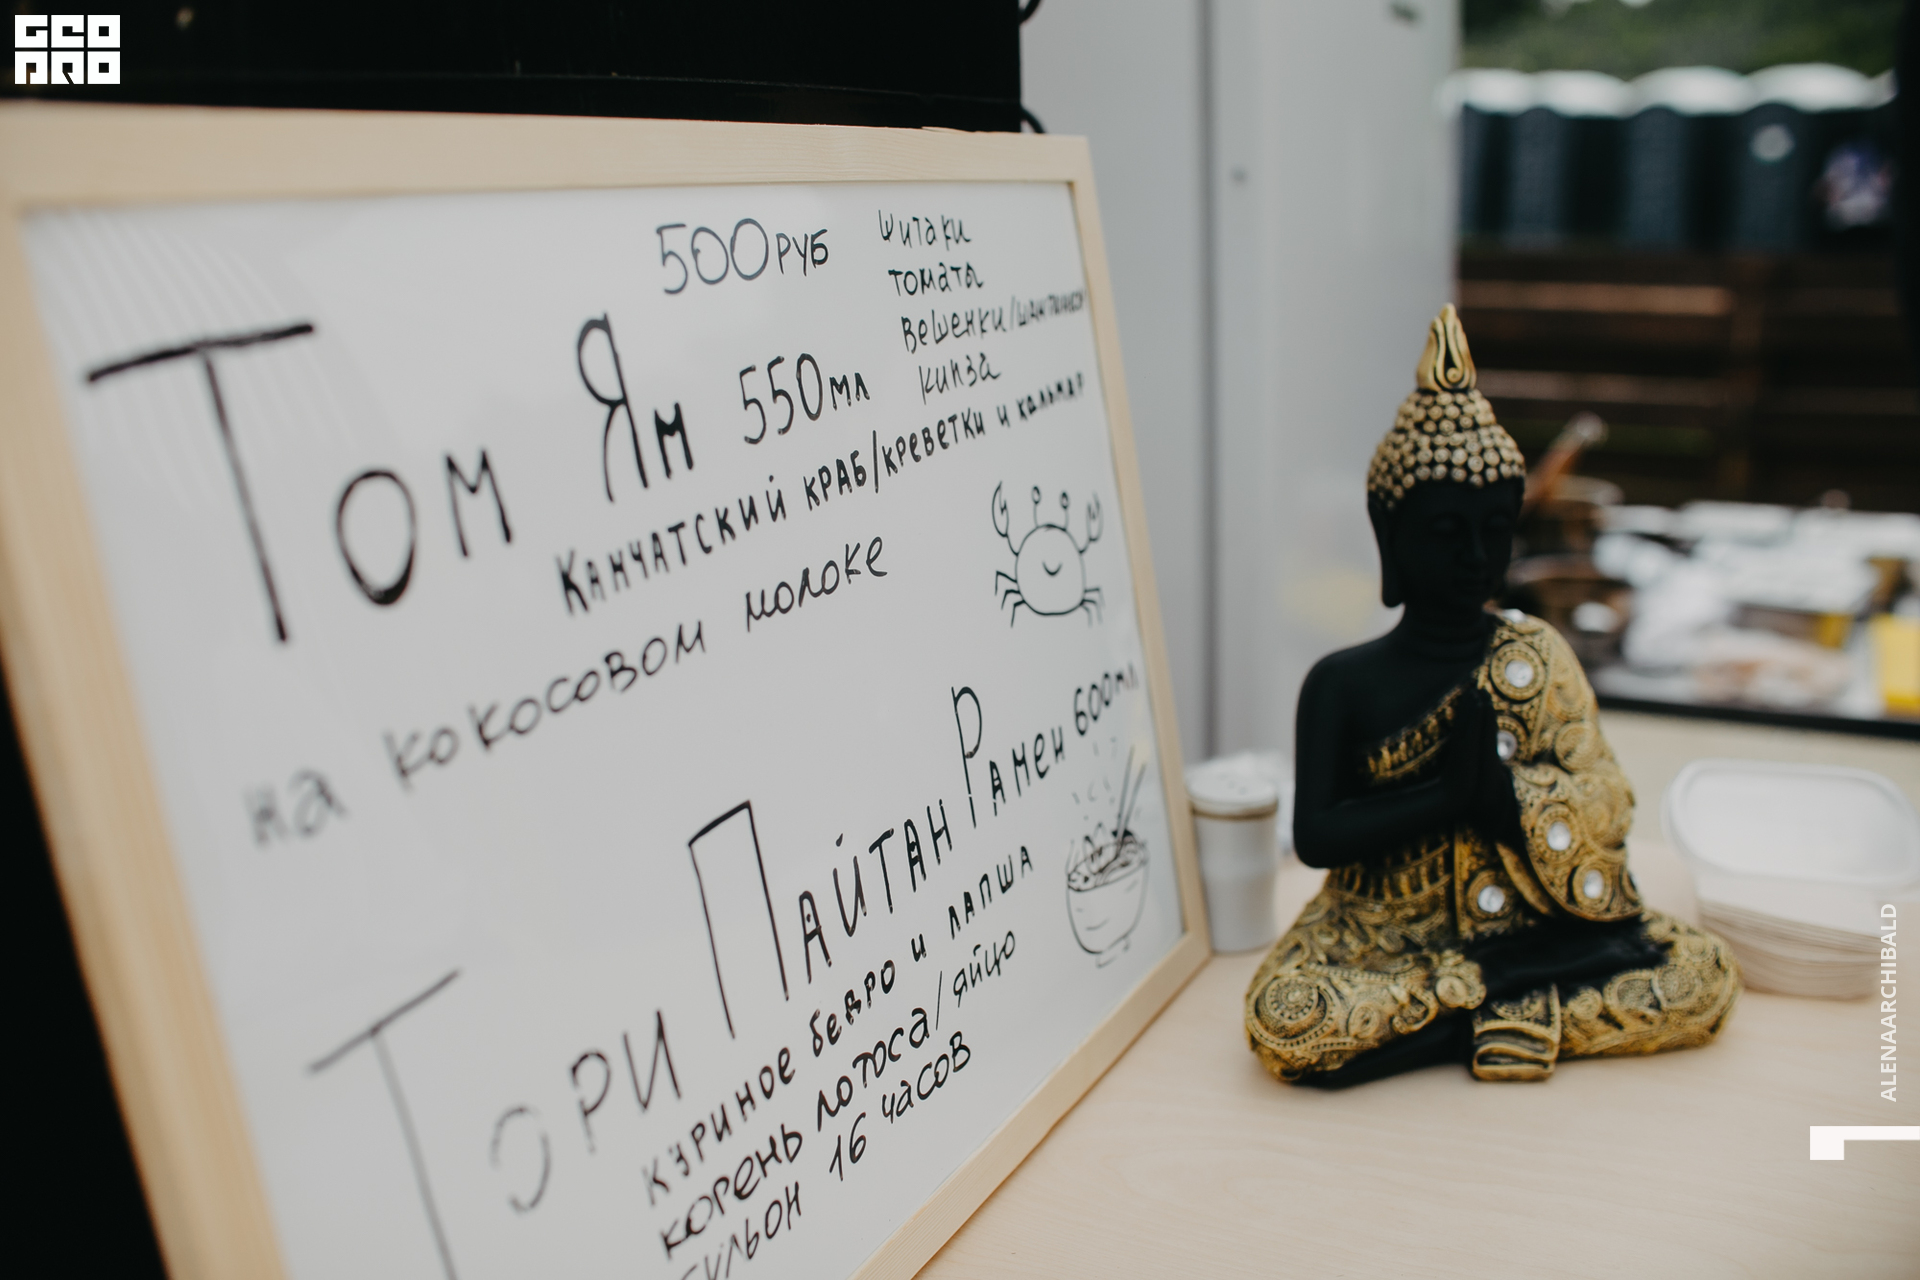 GEO
PRO
500 РУБ
шитаки
томаты
вешенки/шампиньон
кинза
Том Ям 550мл
Камчатский краб/креветки и кальмар
на кокосовом молоке
Тори Пайтан Рамен 600мл
куриное бедро и лапша
корень лотоса/яйцо
бульон 16 часов
ALENAARCHIBALD